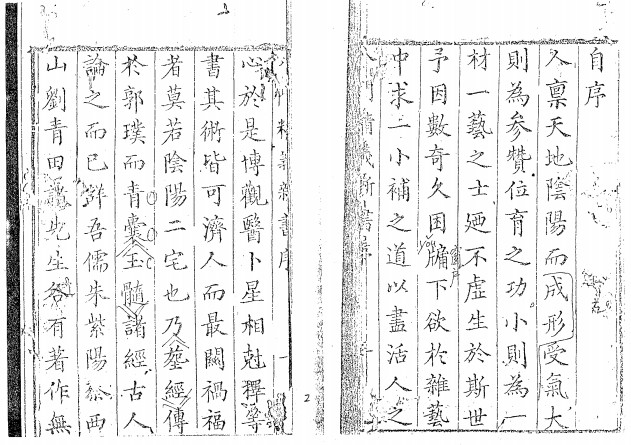 自序
人稟天地陰陽而成形受氣大
則為參贊位育之功小則為一
材一藝之士廼不虛生於斯世
予因數奇久困牖下欲於雜藝
you
窗户
中求二小補之道以盡活人之
心於是博觀醫卜星相尅擇等
書其術皆可濟人而最關禍福
者莫若陰陽二宅也乃塟經傳
於郭璞而青囊玉髓諸經古人
論之而已鮮吾儒朱紫陽蔡西
山劉青田諸先生各有著作無
2